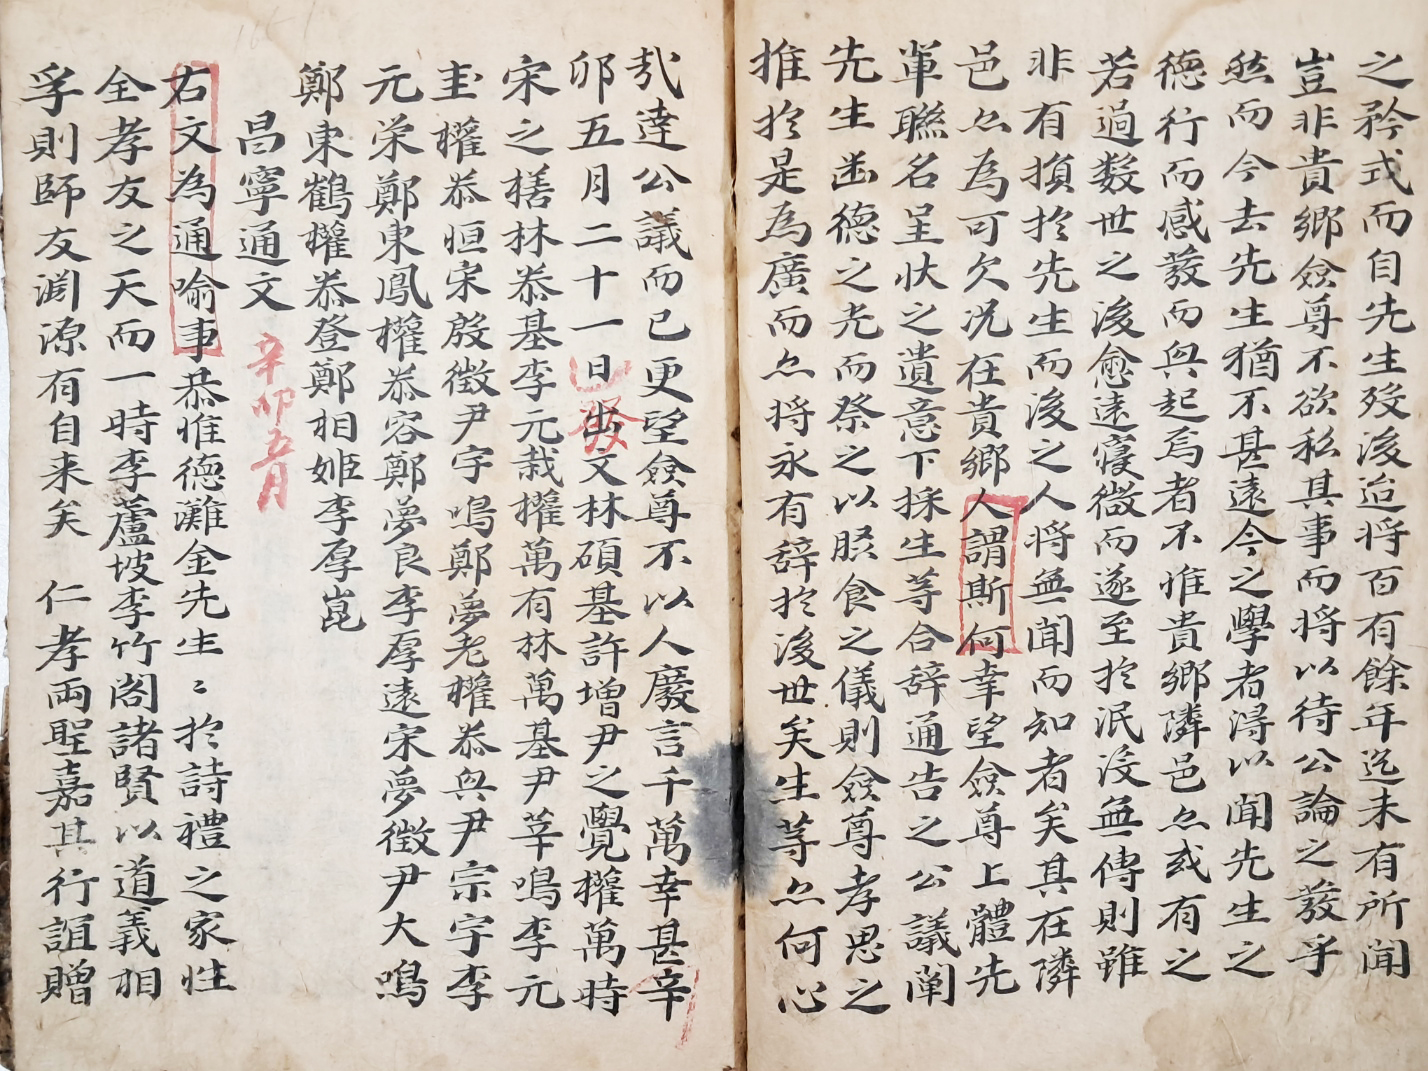 之矜式而自先生歿後迨将百有餘年迄未有所聞
豈非貴鄉僉尊不欲私其事而将以待公論之發乎
然而今去先生猶不甚遠今之學者淂以聞先生之
德行而感發而興起焉者不惟貴鄉隣邑亦或有之
若過数世之後愈遠寢微而遂至於泯没無傳則雖
非有損於先生而後之人将無聞而知者矣其在隣
邑亦為可欠况在貴鄉人謂斯何幸望僉尊上體先
軰聯名呈状之遺意下採生等合辞通告之公議闡
先生幽德之光而祭之以腏食之儀則僉尊孝思之
推於是為廣而亦将永有辞於後世矣生等亦何心
㢤達公議而已更望僉尊不以人廢言千萬幸甚辛
卯五月二十一日出文林碩基許增尹之覺權萬時
宋之橏林㳟基李元栽權萬有林萬基尹莘鳴李元
圭權㳟恒宋殷徵尹宇鳴鄭夢老權㳟興尹宗宇李
元栄鄭東鳳權㳟容鄭夢良李厚遠宋夢徴尹大鳴
鄭東鶴權㳟登鄭相姫李厚崑
昌寧通文 辛卯五月
右文為通喻事恭惟德灘金先生〻於詩禮之家性
全孝友之天而一時李蘆坡李竹閣諸賢以道義相
孚則師友渊源有自来矣 仁孝両聖嘉其行誼贈